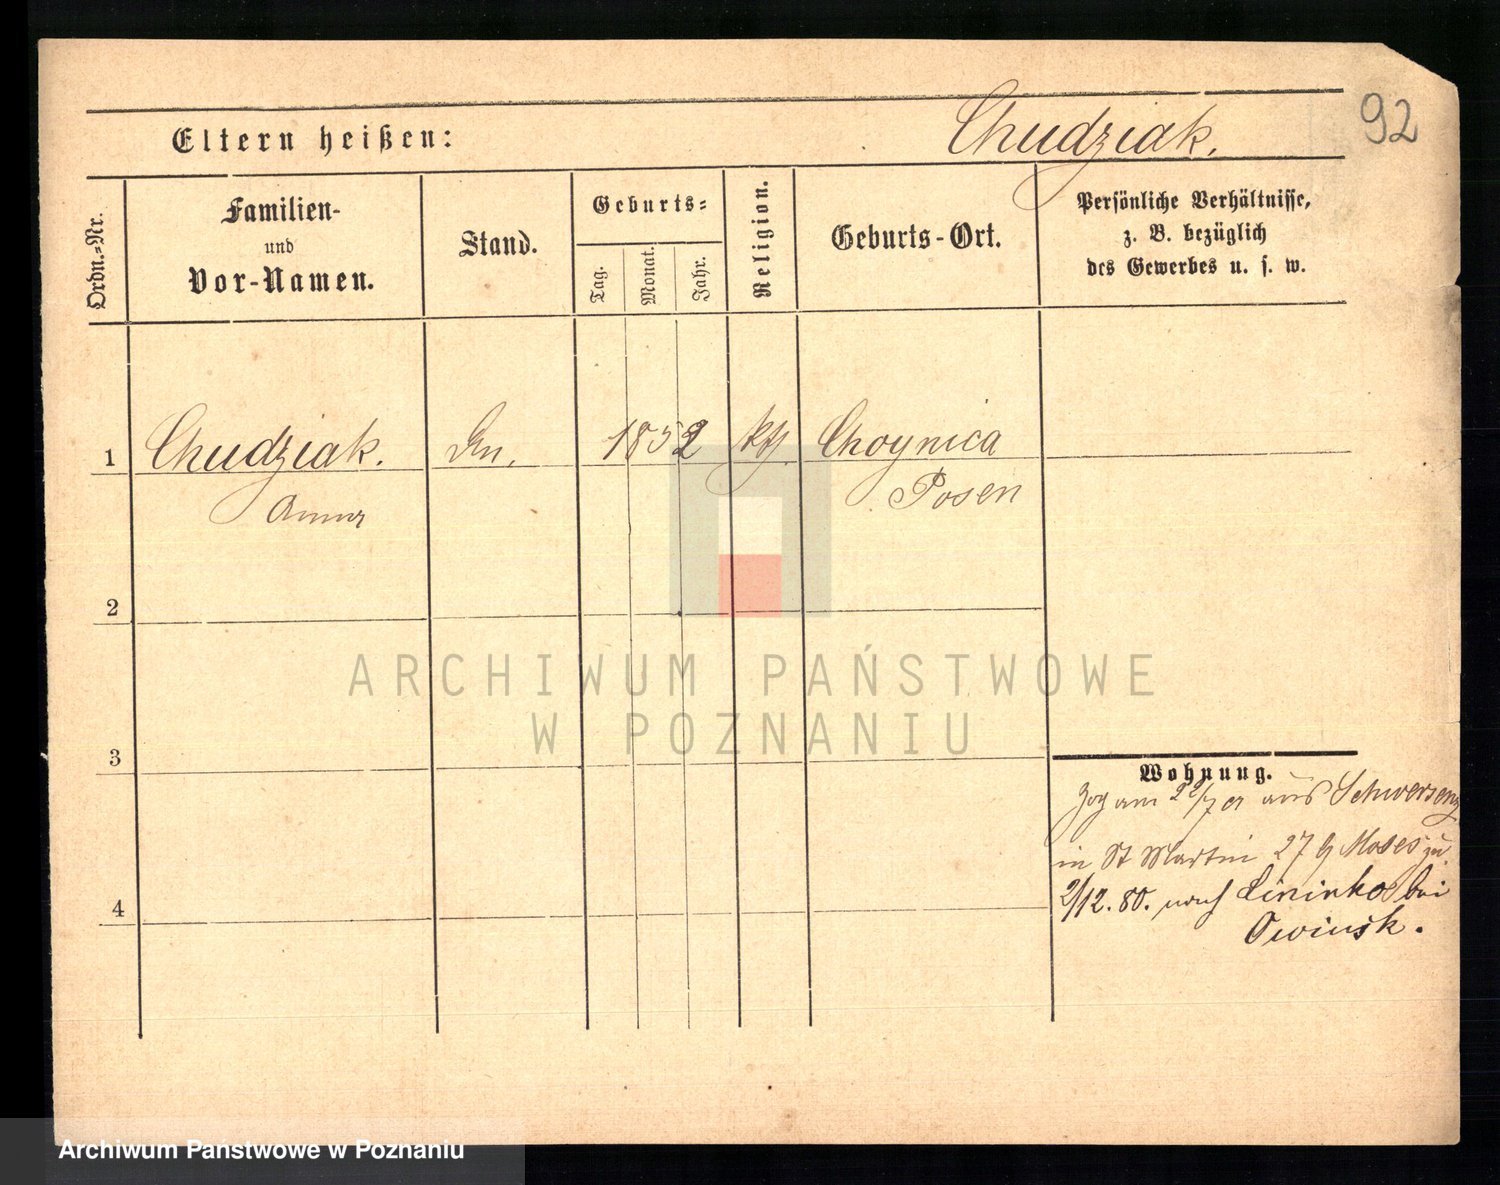 92
Eltern heißen:
Chudziak.
Ordn.-Nr.
Familien-
und
Vor-Namen.
Stand.
Geburts-
Tag.
Monat.
Jahr.
Religion.
Geburts-Ort.
Persönliche Verhältnisse,
z. B. bezüglich
des Gewerbes u. s. w.
1 Chudziak. 1852 kth. Choynica
Anna Posen
2
3
4
Wohnung.
Zog am 22/7 cr aus Schwersenz
in St Martin 27 b Moses zu.
2/12. 80. nach bei
Owinsk.
ARCHIWUM PAŃSTWOWE
W POZNANIU
Archiwum Państwowe w Poznaniu